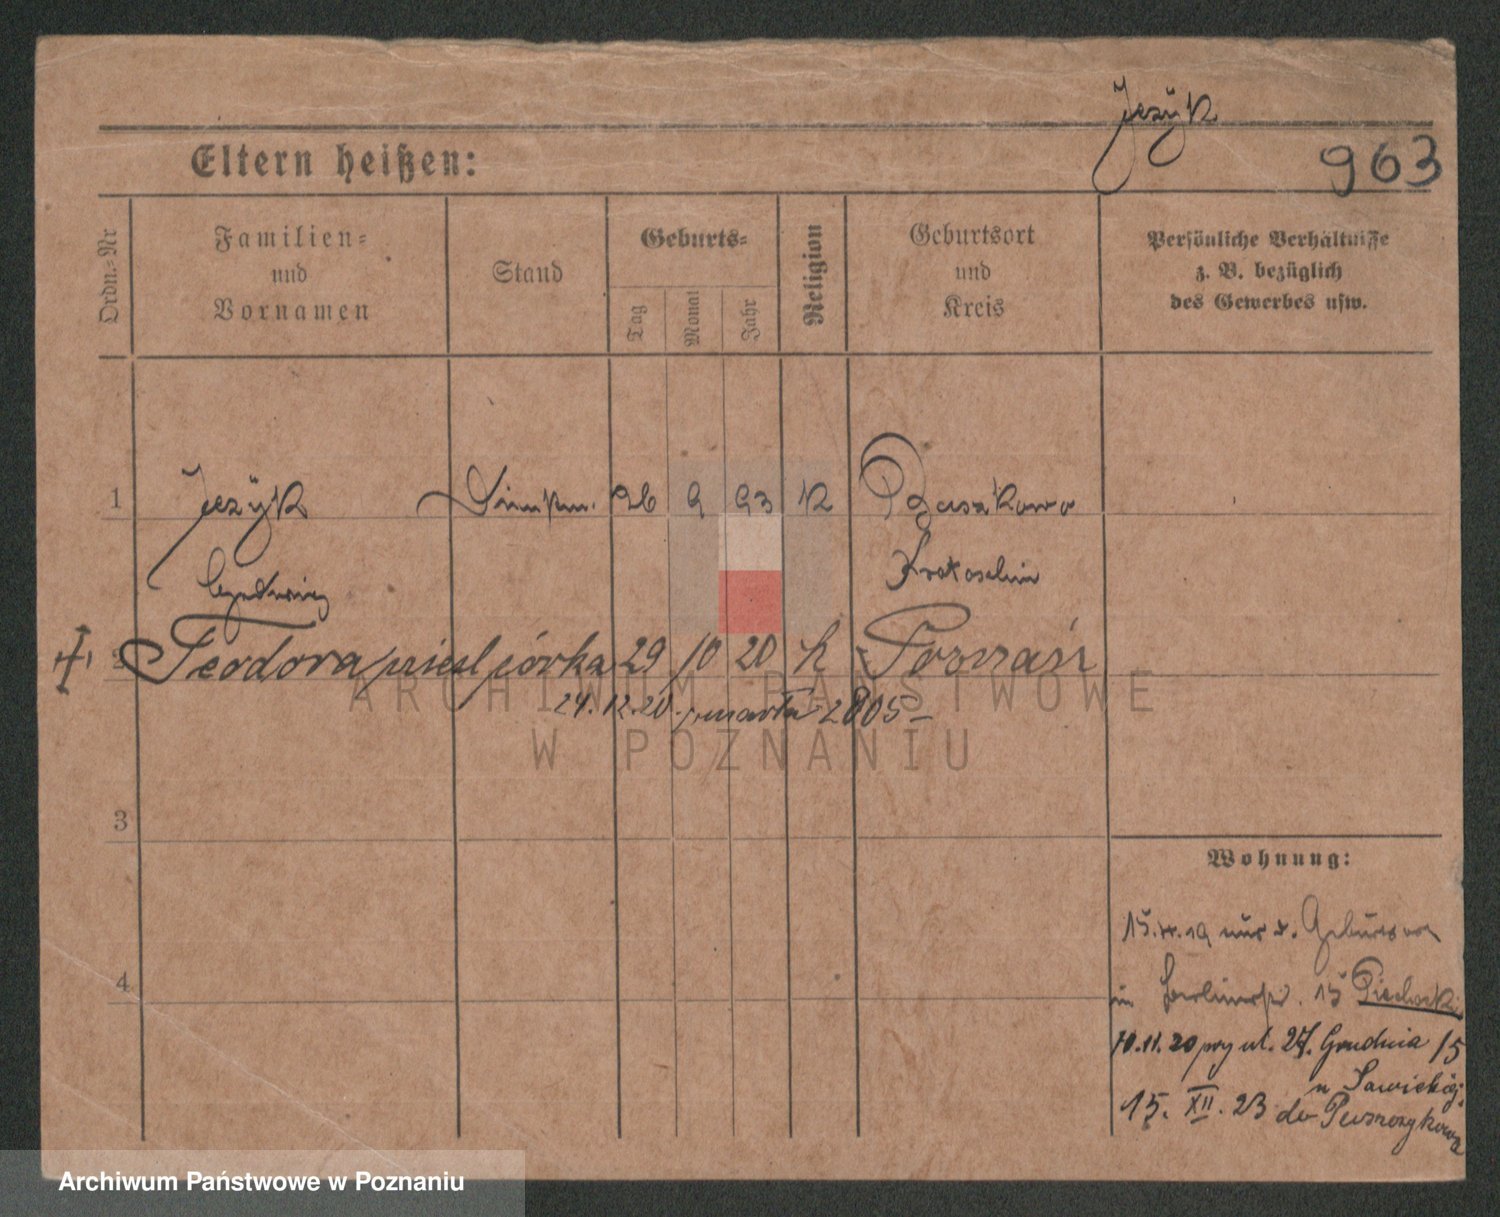 Jezÿk
963
Eltern heißen:
Ordn.-Nr
Familien-
und
Vornamen
Stand
Geburts-
Tag
Monat
Jahr
Religion
Geburtsort
und
Kreis
Persönliche Verhältnisse
z. B. bezüglich
des Gewerbes usw.
1 Jezÿk 26 9 93 K
Krotoschin
2 Teodora córka 29 10 20 k Poznań
24.12.20 zmarła 2805
ARCHIWUM PAŃSTWOWE
W POZNANIU
3
4
Wohnung:
in 15 Piechocki
10.11.20 przy ul. 27. Grudnia 15
u Sawickiej
15. XII. 23 do
Archiwum Państwowe w Poznaniu